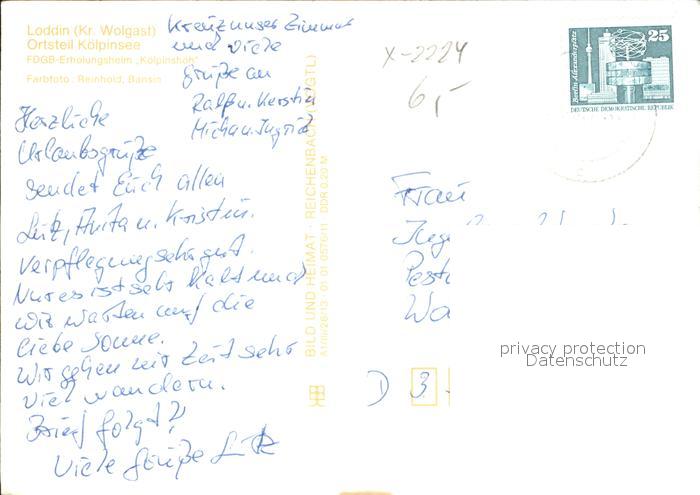 Loddin (Kr. Wolgast)
Ortsteil Kölpinsee
FDGB-Erholungsheim „Kölpinshöh"
Farbfoto: Reinhold, Bansin
Kreuz unser Zimmer
und viele
Grüße an
Ralf u. Kerstin
Micha u. Ingrid
Herzliche
Urlaubsgrüße
sendet Euch allen
Lutz, Anita u. Kristin.
Verpflegung sehr gut.
Nur es ist sehr kalt und
wir warten auf die
liebe Sonne.
Wir gehen zur Zeit sehr
viel wandern.
Brief folgt?
Viele Grüße Lutz
BILD UND HEIMAT · REICHENBACH (VOGTL)
DDR 0,20 M
X-2224
6,-
25
Berlin, Alexanderplatz
DEUTSCHE DEMOKRATISCHE REPUBLIK
Frau
Inge
Pest
Wa
D 3
privacy protection
Datenschutz